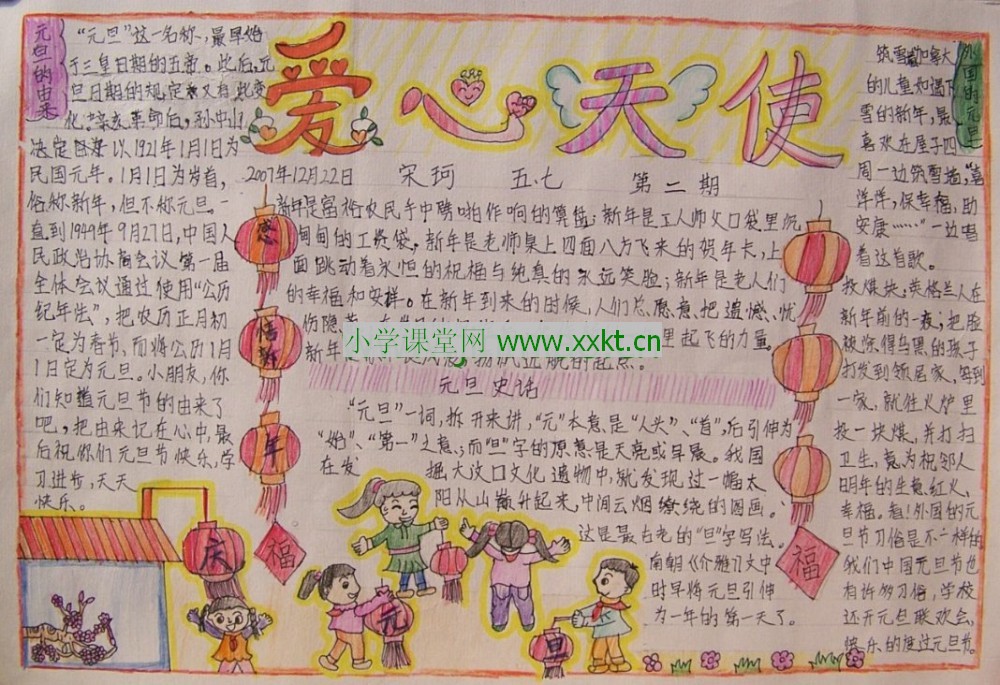 爱心天使
2007年12月22日 宋珂 五.七 第二期
元旦的由来
“元旦”这一名称，最早始
于三皇日期的五帝。此后，元
旦日期的规定又有些变
化。辛亥革命后，孙中山
决定以1921年1月1日为
民国元年。1月1日为岁首，
俗称新年，但不称元旦。一
直到1949年9月27日，中国人
民政治协商会议第一届
全体会议通过使用“公历
纪年法”，把农历正月初
一定为春节，而将公历1月
1日定为元旦。小朋友，你
们知道元旦节的由来了
吧，把由来记在心中，最
后祝你们元旦节快乐，学
习进步，天天
快乐。
新年是富裕农民手中噼啪作响的算盘；新年是工人师父口袋里沉
甸甸的工资袋，新年是老师桌上四面八方飞来的贺年卡，上
面跳动着永恒的祝福与纯真的永远笑脸；新年是老人们
的幸福和安祥。在新年到来的时候，人们总愿意把遗憾、忧
伤隐
里起飞的力量。
新年是
的起点。
小学课堂网 www.xxkt.cn
元旦史话
“元旦”一词，拆开来讲，“元”本意是“人头”、“首”，后引伸为
“始”、“第一”之意；而“旦”字的原意是天亮或早晨。我国
在发掘大汶口文化遗物中，就发现过一幅太
阳从山巅升起来，中间云烟缭绕的图画。
这是最古老的“旦”字写法。
南朝《介雅》文中
时早将元旦引伸
为一年的第一天了。
外国的元旦
筑雪 加拿大
的儿童如遇下
雪的新年，最
喜欢在屋子四
周一边筑雪墙，喜
洋洋，保幸福，助
安康……”一边唱
着这首歌。
投煤块，英格兰人在
新年前的一夜，把脸
被涂得乌黑的孩子
打发到领居家，每到
一家，就往火炉里
投一块煤，并打扫
卫生，意为祝邻人
明年的生意红火，
幸福。看！外国的元
旦节习俗是不一样的
我们中国元旦节也
有许多习俗，学校
还开元旦联欢会，
快乐的度过元旦节。
感
悟
新
年
庆
元
旦
福
福